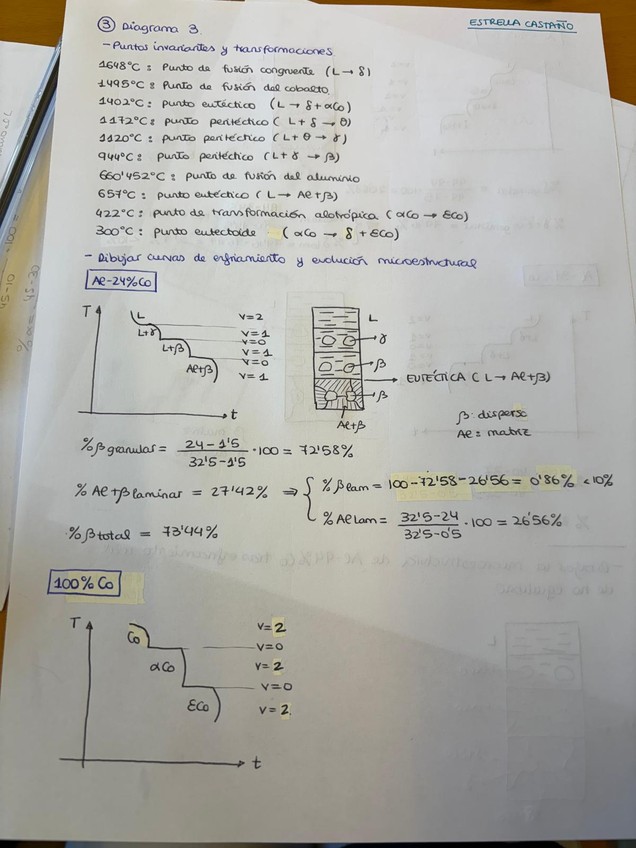 ③ Diagrama 3
ESTRELLA CASTAÑO
- Puntos invariantes y transformaciones
1648°C: Punto de fusión congruente (L → δ)
1495°C: Punto de fusión del cobalto
1402°C: punto eutéctico (L → δ + αCo)
1172°C: punto peritéctico (L + δ → θ)
1120°C: punto peritéctico (L + θ → γ)
944°C: punto peritéctico (L + γ → β)
660'452°C: punto de fusión del aluminio
657°C: punto eutéctico (L → Al + β)
422°C: punto de transformación alotrópica (αCo → εCo)
300°C: punto eutectoide (αCo → δ + εCo)
- Dibujar curvas de enfriamiento y evolución microestructural
Al-24%Co
T
L
L+γ
L+β
Al+β
t
v=2
v=1
v=0
v=1
v=0
v=1
L
γ
β
EUTÉCTICA (L → Al+β)
β
Al+β
β: dispersa
Al: matriz
%β granular = 24-1'5 / 32'5-1'5 · 100 = 72'58%
% Al+β laminar = 27'42% ⇒ { % β lam = 100-72'58-26'56 = 0'86% < 10%
% Al Lam = 32'5-24 / 32'5-0'5 · 100 = 26'56%
% β total = 73'44%
100% Co
T
Co
αCo
εCo
t
v=2
v=0
v=2
v=0
v=2